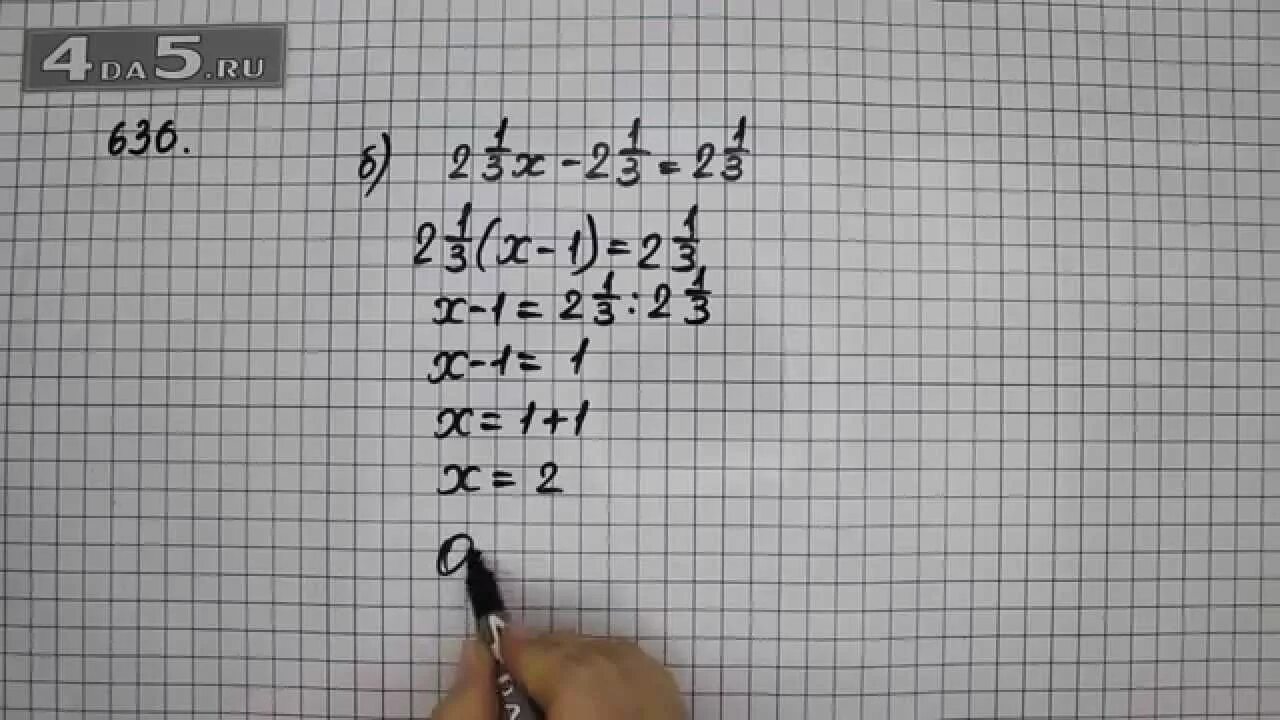 4DA5.RU
636.
б) 2 1/3 x - 2 1/3 = 2 1/3
2 1/3 (x - 1) = 2 1/3
x - 1 = 2 1/3 : 2 1/3
x - 1 = 1
x = 1 + 1
x = 2
О